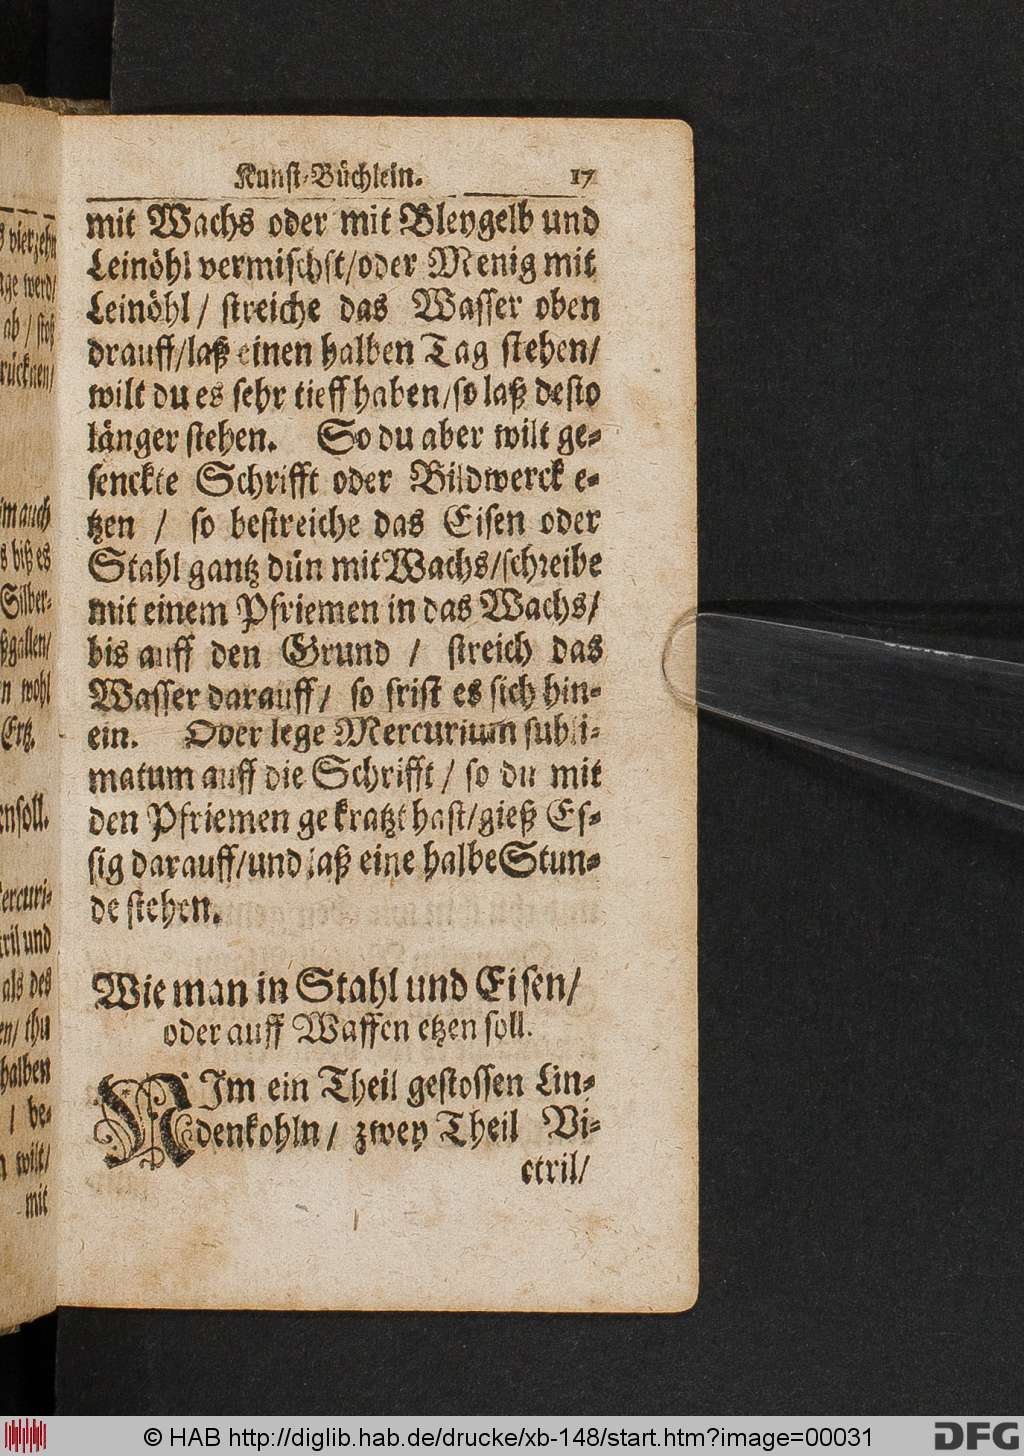 Kunst-Büchlein. 17
mit Wachs oder mit Bleygelb und
Leinöhl vermischst/oder Menig mit
Leinöhl / streiche das Wasser oben
drauff/laß einen halben Tag stehen/
wilt du es sehr tieff haben/so laß desto
länger stehen. So du aber wilt ge-
senckte Schrifft oder Bildwerck e-
tzen / so bestreiche das Eisen oder
Stahl gantz dün mit Wachs/schreibe
mit einem Pfriemen in das Wachs/
bis auff den Grund / streich das
Wasser darauff/ so frist es sich hin-
ein. Oder lege Mercurium subli-
matum auff die Schrifft / so du mit
den Pfriemen gekratzt hast/gieß Es-
sig darauff/und laß eine halbe Stun-
de stehen.
Wie man in Stahl und Eisen/
oder auff Waffen etzen soll.
NIm ein Theil gestossen Lin-
denkohln/ zwey Theil Vi-
ctril/
vierzehn
werd/
ab / stoß
im auch
s biß es
Silber-
n wohl
Ertz.
soll.
und
als des
thu
halben
/ be-
wilt/
mit
© HAB http://diglib.hab.de/drucke/xb-148/start.htm?image=00031
DFG